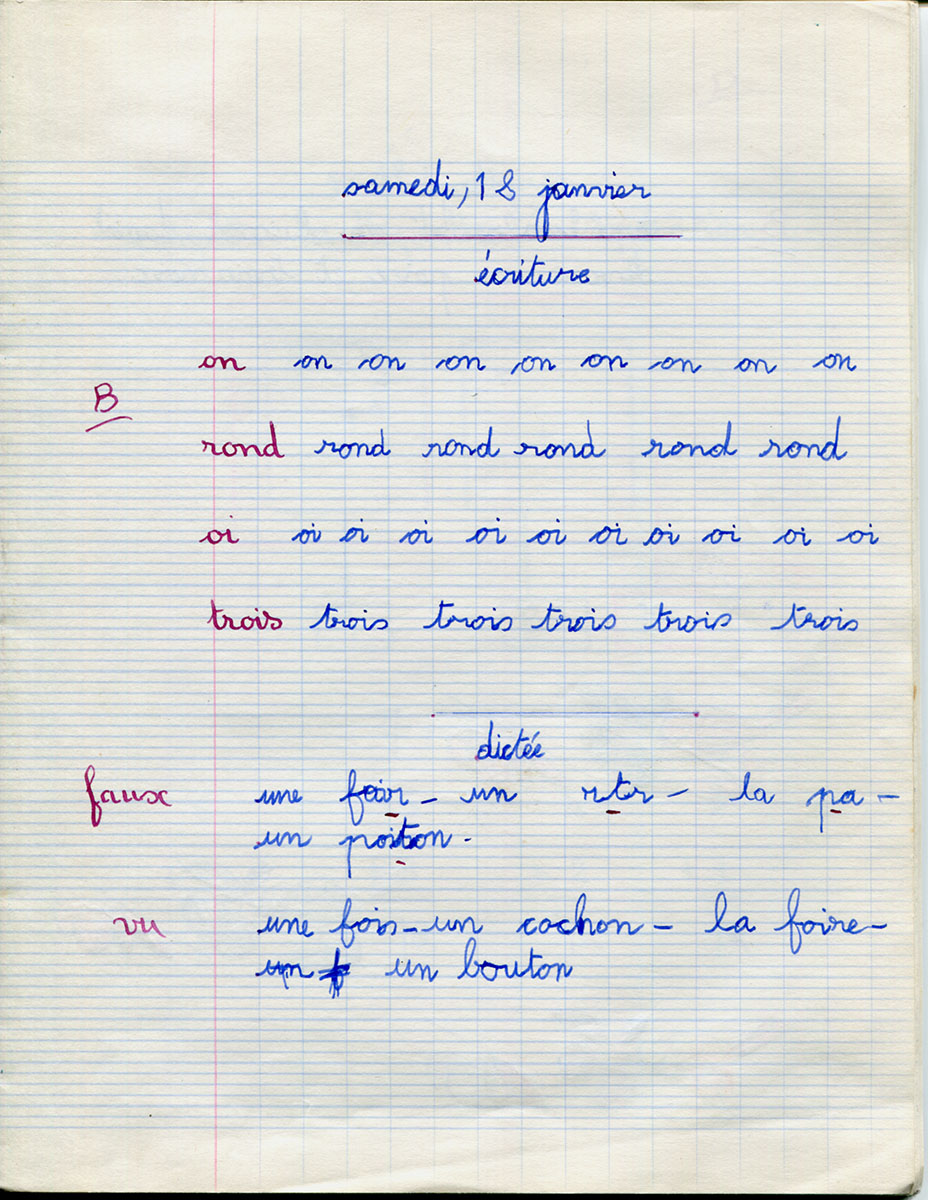 samedi, 18 janvier
écriture
on on on on on on on on on
B
rond rond rond rond rond rond
oi oi oi oi oi oi oi oi oi oi
trois trois trois trois trois trois
dictée
faux une foir - un rtr - la pa -
un poiton -
vu une fois - un cochon - la foire -
un un bouton